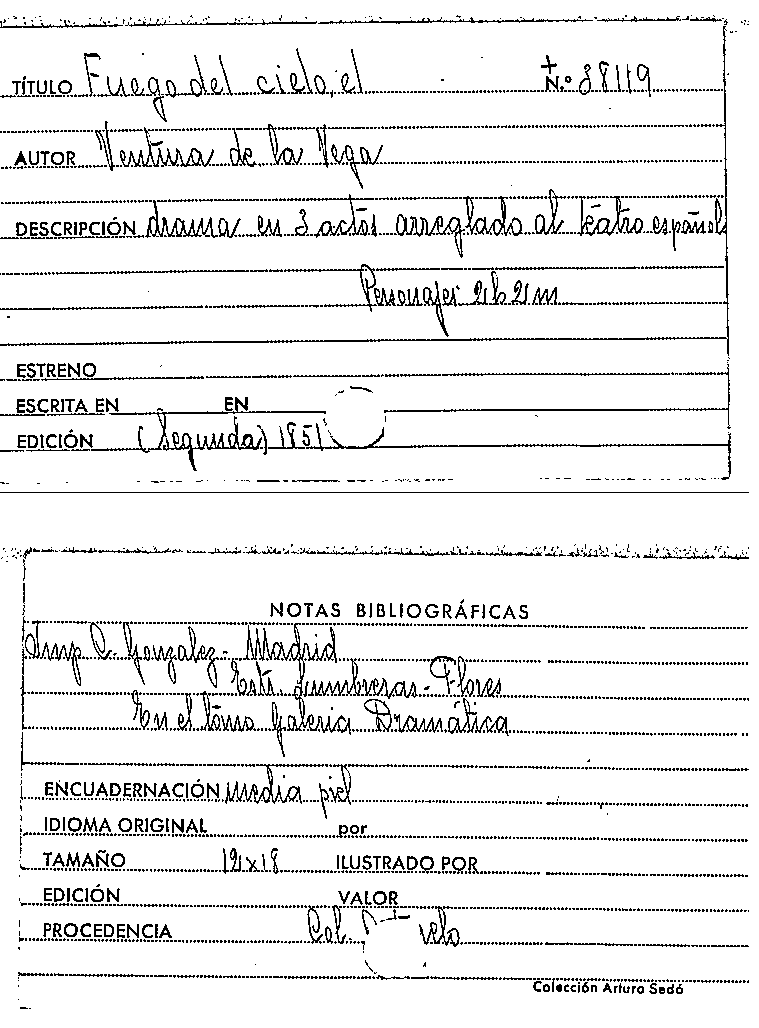 TÍTULO Fuego del cielo, el + N.º 38119
AUTOR Ventura de la Vega
DESCRIPCIÓN drama en 3 actos arreglado al teatro español
Personajes 2h 2m
ESTRENO
ESCRITA EN EN
EDICIÓN (Segunda) 1851
NOTAS BIBLIOGRÁFICAS
Imp C. Gonzalez - Madrid
Lumbreras - Flores
En el tomo Galeria Dramática
ENCUADERNACIÓN media piel
IDIOMA ORIGINAL por
TAMAÑO 12x18 ILUSTRADO POR
EDICIÓN VALOR
PROCEDENCIA Col.
Colección Arturo Sedó